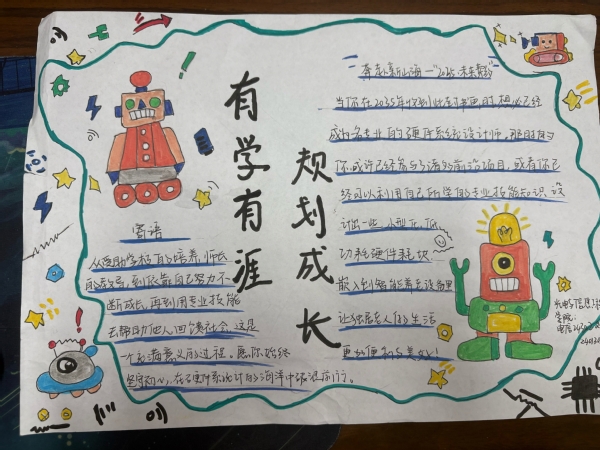 有学有涯
规划成长
寄语
从受助学校的培养,师长
的教导,到依靠自己努力不
断成长,再到用专业技能
去帮助他人,回馈社会,这是
一个充满意义的过程。愿你始终
坚守初心,在硬件系统设计的海洋中破浪前行。
当你在2035年收到此封书面时,想必已经
成为名专业的硬件系统设计师,那时的
你或许已经参与了诸多前沿项目,或者你已
经可以利用自己所学的专业技能知识,设
计出一些小型化、低
功耗硬件模块
嵌入到智能养老设备里
让独居老人的生活
更加便利与美好!
光电信息
学院